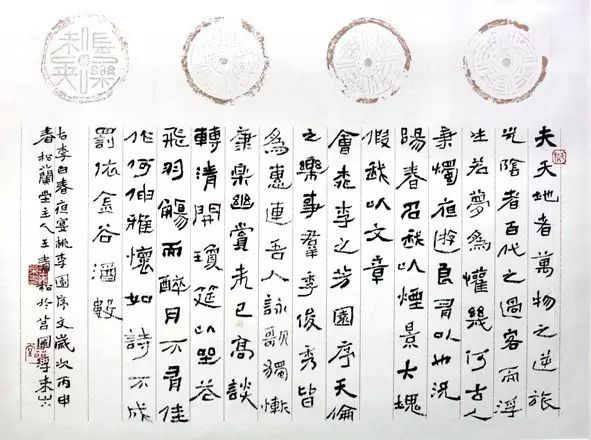 長樂未央
夫天地者萬物之逆旅
光陰者百代之過客而浮
生若夢為懽幾何古人
秉燭夜遊良有以也況
陽春召我以煙景大塊
假我以文章
會桃李之芳園序天倫
之樂事羣季俊秀皆
為惠連吾人詠歌獨慚
康樂幽賞未已高談
轉清開瓊筵以坐花
飛羽觴而醉月不有佳
作何伸雅懷如詩不成
罰依金谷酒數
右李白春夜宴桃李園序文歲次丙申
春松蘭堂主人王青松於莒國